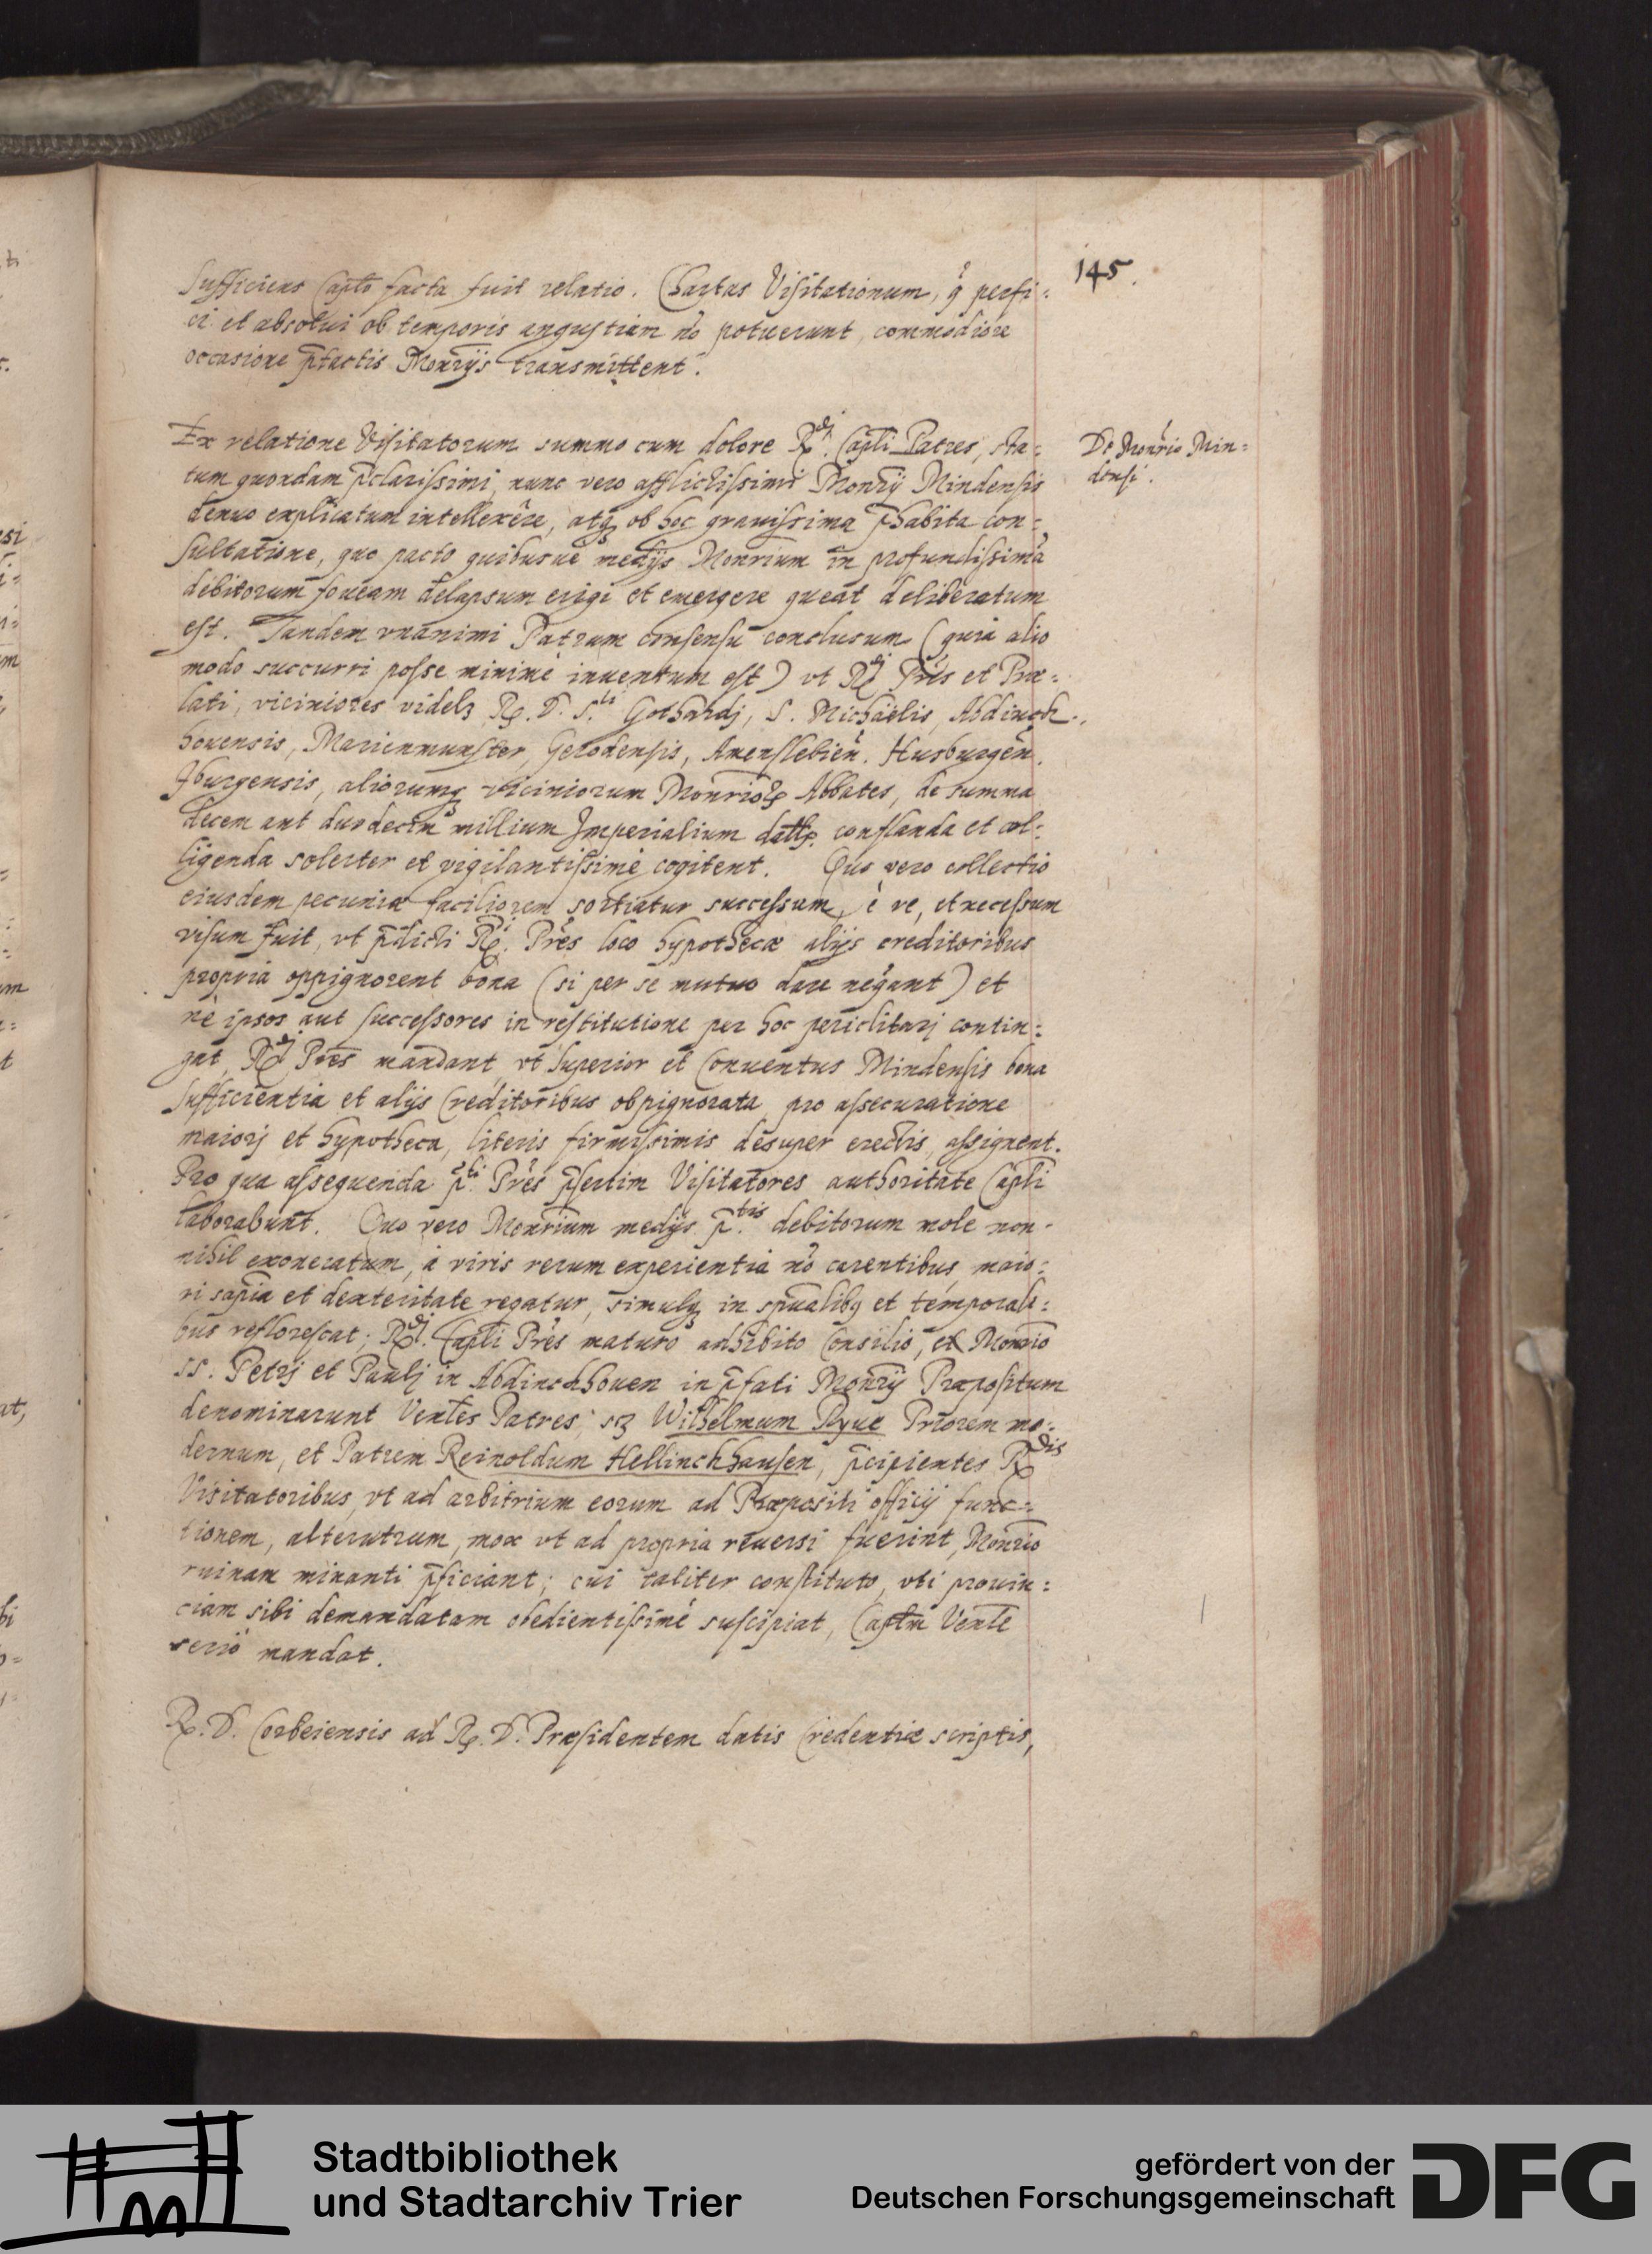 145.
Sufficiens Caplo facta fuit relatio. Chartas Visitationum, q̊ perfi:
ci et absolui ob temporis angustiam nō potuerunt, commodiore
occasione p̄tactis Monrijs transmittent.
De Monrio Min=
densi.
Ex relatione Visitatorum summo cum dolore Rdi. Capli Patres, sta:
tum quondam p̄clarissimi, nunc vero afflictissimi Monrij Mindensis
denuo explicatum intellexêre, atq; ob hoc grauissima p̄habita con=
sultatione, quo pacto quibusuè medijs Monrium in profundissimā
debitorum foueam delapsum erigi et emergere queat deliberatum
est. Tandem vnanimi Patrum consensu conclusum (quia alio
modo succurri posse minimè inuentum est) vt Rdi Pr̄es et Præ:
lati, viciniores videlz R. D. S.ti Gothardj, S. Michaëlis, Abdinck:
houensis, Marienmunster, Gerodensis, Amenslebien̄. Husburgen̄.
Iburgensis, aliorumq; viciniorum Monriorum Abbates, de summa
decem aut duodecim millium Imperialium dallr. conflanda et col:
ligenda solerter et vigilantissimè cogitent. Quo vero collectio
eiusdem pecuniæ faciliorem sortiatur successum, è re, et necessum
visum fuit, vt p̄dicti R.i Pr̄es loco hypothecæ alijs creditoribus
propria oppignorent bona (si per se mutuo dare negant) et
ne ipsos aut successores in restitutione per hoc periclitarj contin:
gat, Rdi Pr̄es mandant, vt Superior et Conuentus Mindensis bona
sufficientia et alijs Creditoribus obpignorata pro assecuratione
maiorj et hypotheca, literis firmissimis desuper erectis, assignent.
Pro qua assequenda p̄.ti Pr̄es p̄sertim Visitatores authoritate Capli
laborabunt. Quo vero Monrium medijs p̄.tis debitorum mole non=
nihil exoneratum, à viris rerum experientia nō carentibus, maio:
ri sap̄ia et dexteritate regatur, simulq; in sp̄ualibq et temporali:
bus reflorescat; Rdi. Capli Pr̄es maturo adhibito Consilio, ex Monrio
SS. Petrj et Paulj in Abdinckhouen in p̄fati Monrij Præpositum
denominarunt Ven̄les Patres, sz Wilhelmum Ryue Priorem mo:
dernum, et Patrem Reinoldum Hellinckhausen, p̄cipientes Rdis
Visitatoribus, vt ad arbitrium eorum ad Præpositi officij func=
tionem, alterutrum, mox vt ad propria reuersi fuerint, Monrio
ruinam minanti p̄ficiant; cui taliter constituto, vti prouin:
ciam sibi demandatam obedientissimè suscipiat, Captm̄ Ven̄le
seriò mandat.
R. D. Corbeiensis ad R. D. Præsidentem datis Credentiæ scriptis,
Stadtbibliothek
und Stadtarchiv Trier
gefördert von der
Deutschen Forschungsgemeinschaft
DFG